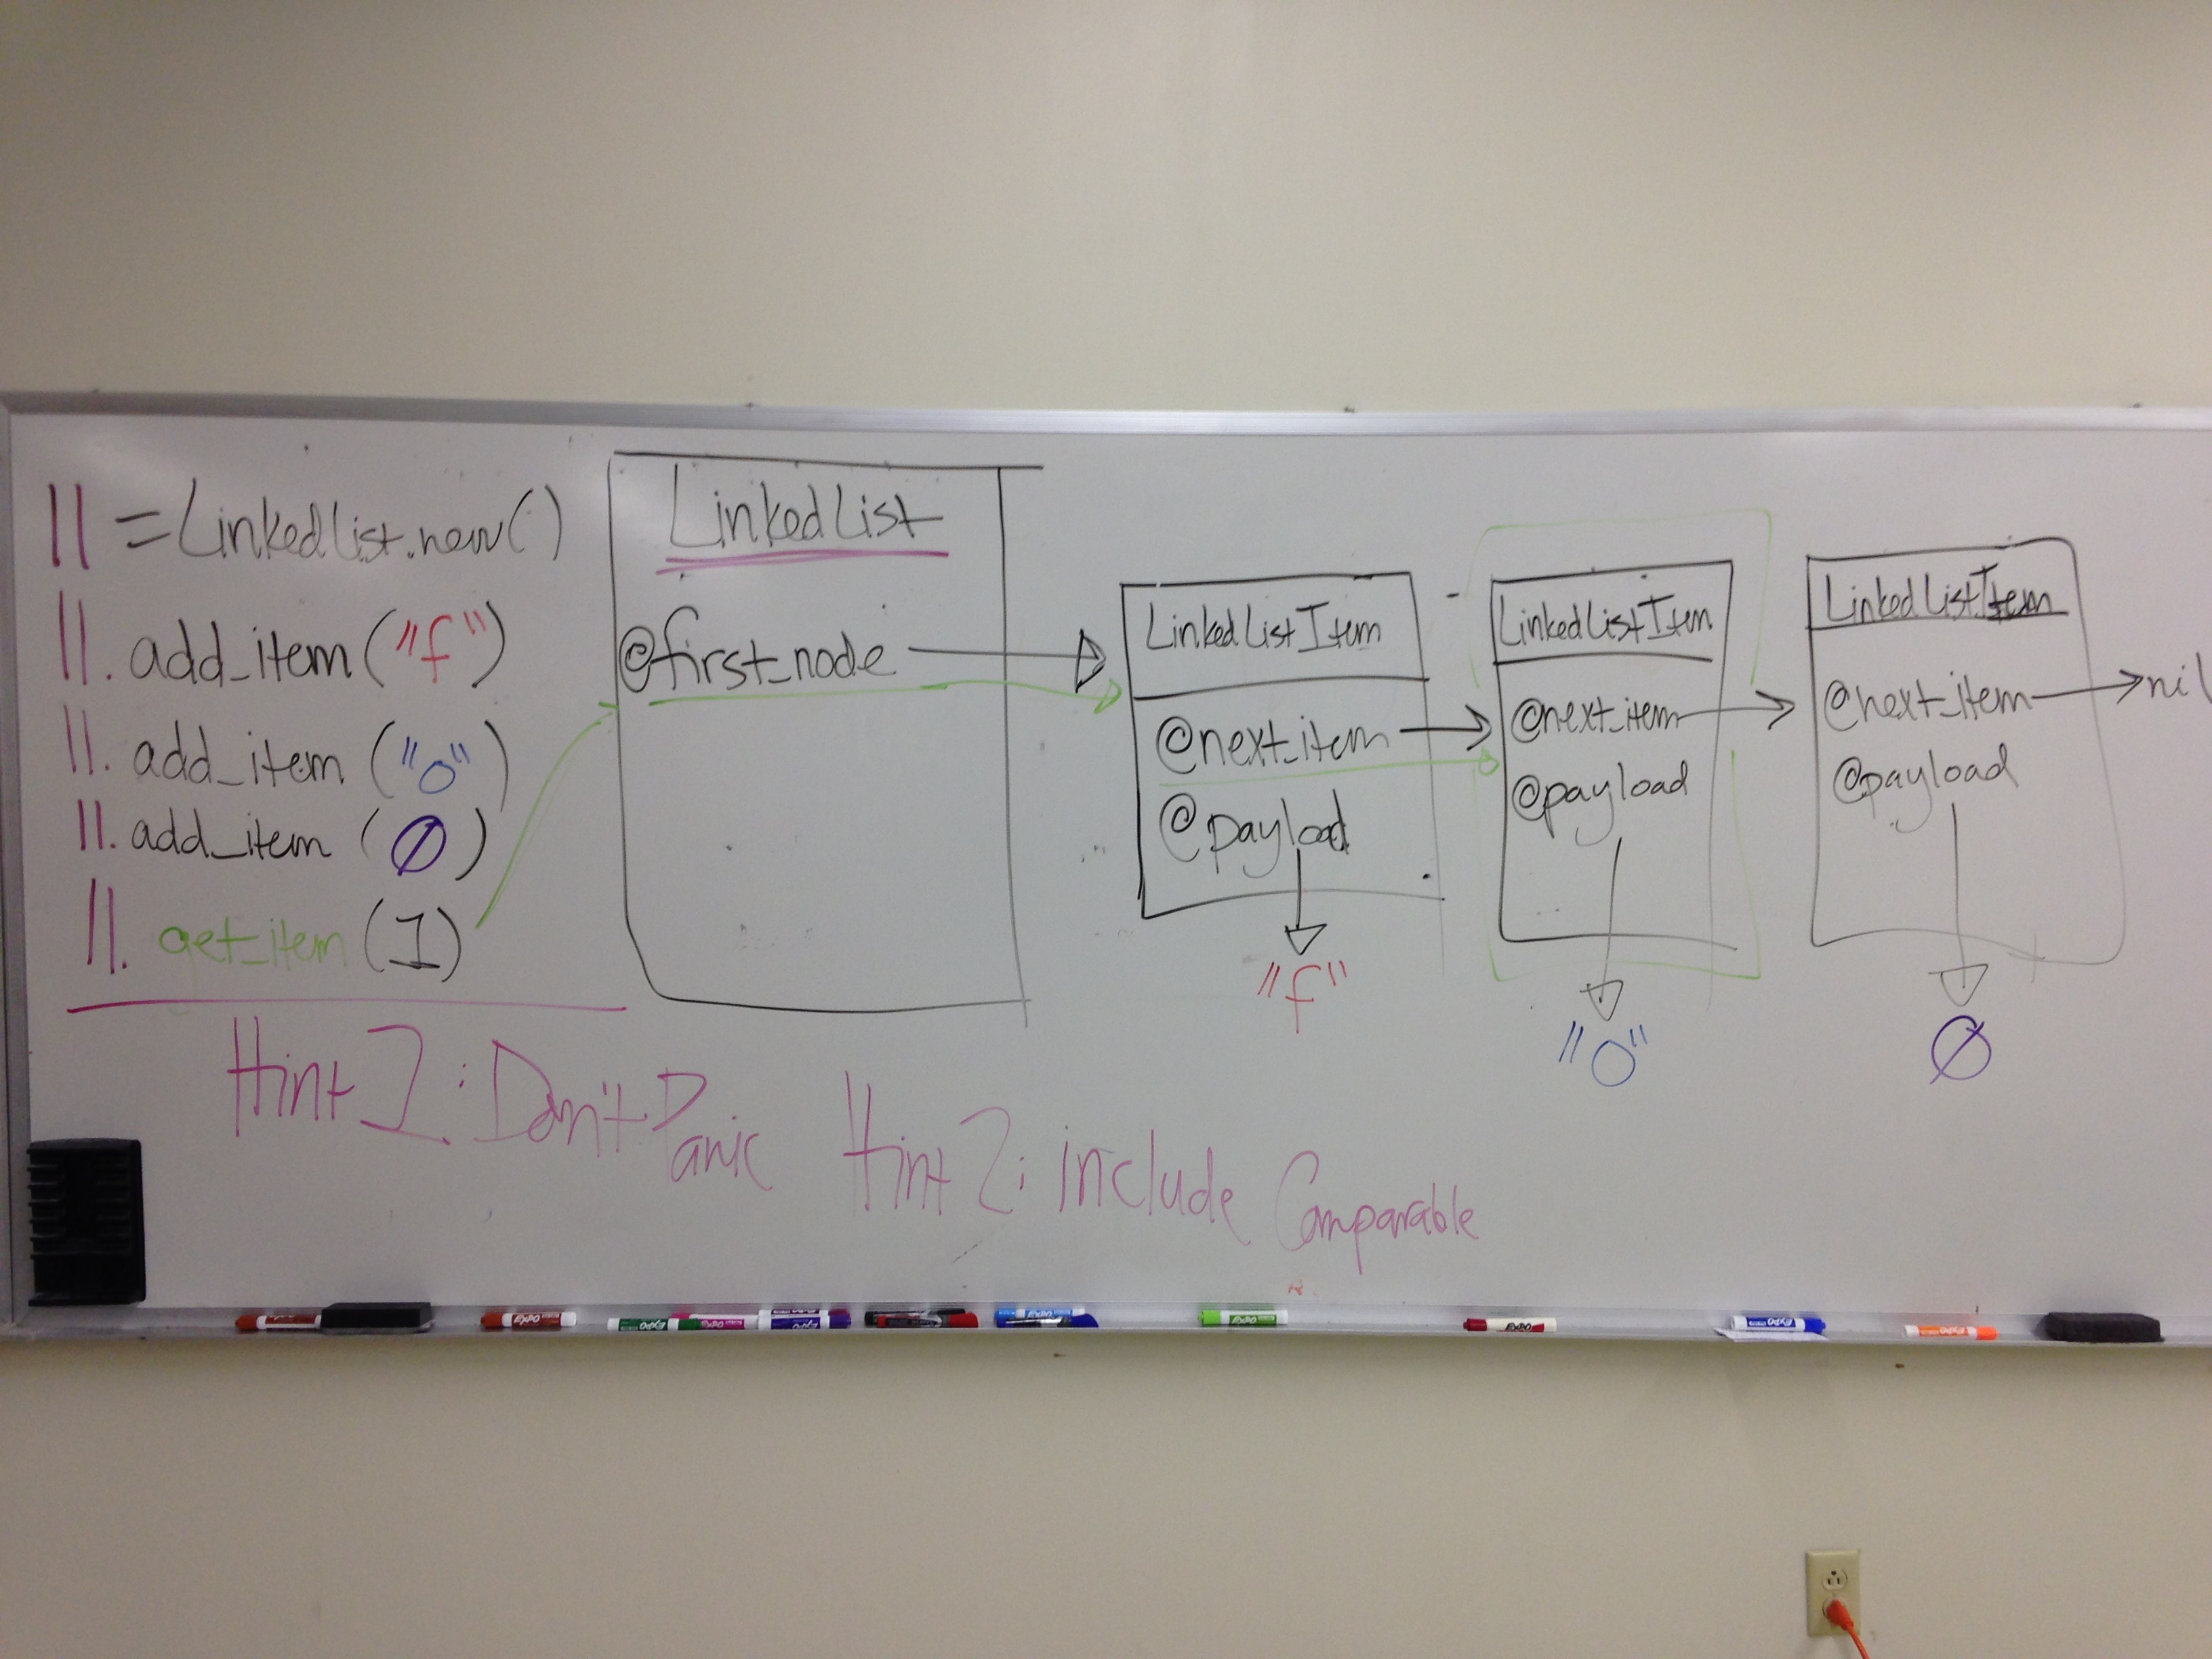 ll = LinkedList.new()
ll. add_item ("f")
ll. add_item ("o")
ll. add_item (Ø)
ll. get_item (1)
LinkedList
@first_node
LinkedListItem
@next_item
@payload
"f"
LinkedListItem
@next_item
@payload
"o"
LinkedListItem
@next_item → nil
@payload
Ø
Hint 1: Don't Panic
Hint 2: include Comparable
EXPO
EXPO
EXPO
EXPO
EXPO
EXPO
EXPO